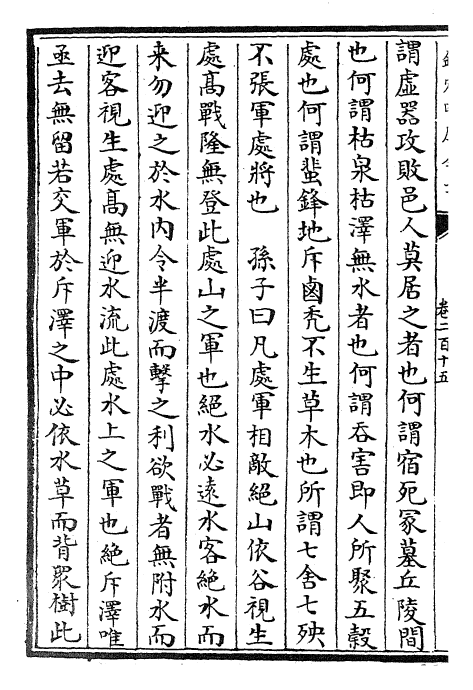 謂虛器攻敗邑人莫居之者也何謂宿死冢墓丘陵間
也何謂枯泉枯澤無水者也何謂吞害即人所聚五穀
處也何謂蜚鋒地斥鹵秃不生草木也所謂七舍七殃
不張軍處將也　孫子曰凡處軍相敵絕山依谷視生
處髙戰隆無登此處山之軍也絕水必逺水客絕水而
来勿迎之於水内令半渡而擊之利欲戰者無附水而
迎客視生處髙無迎水流此處水上之軍也絕斥澤唯
亟去無留若交軍於斥澤之中必依水草而背衆樹此
卷二百十五